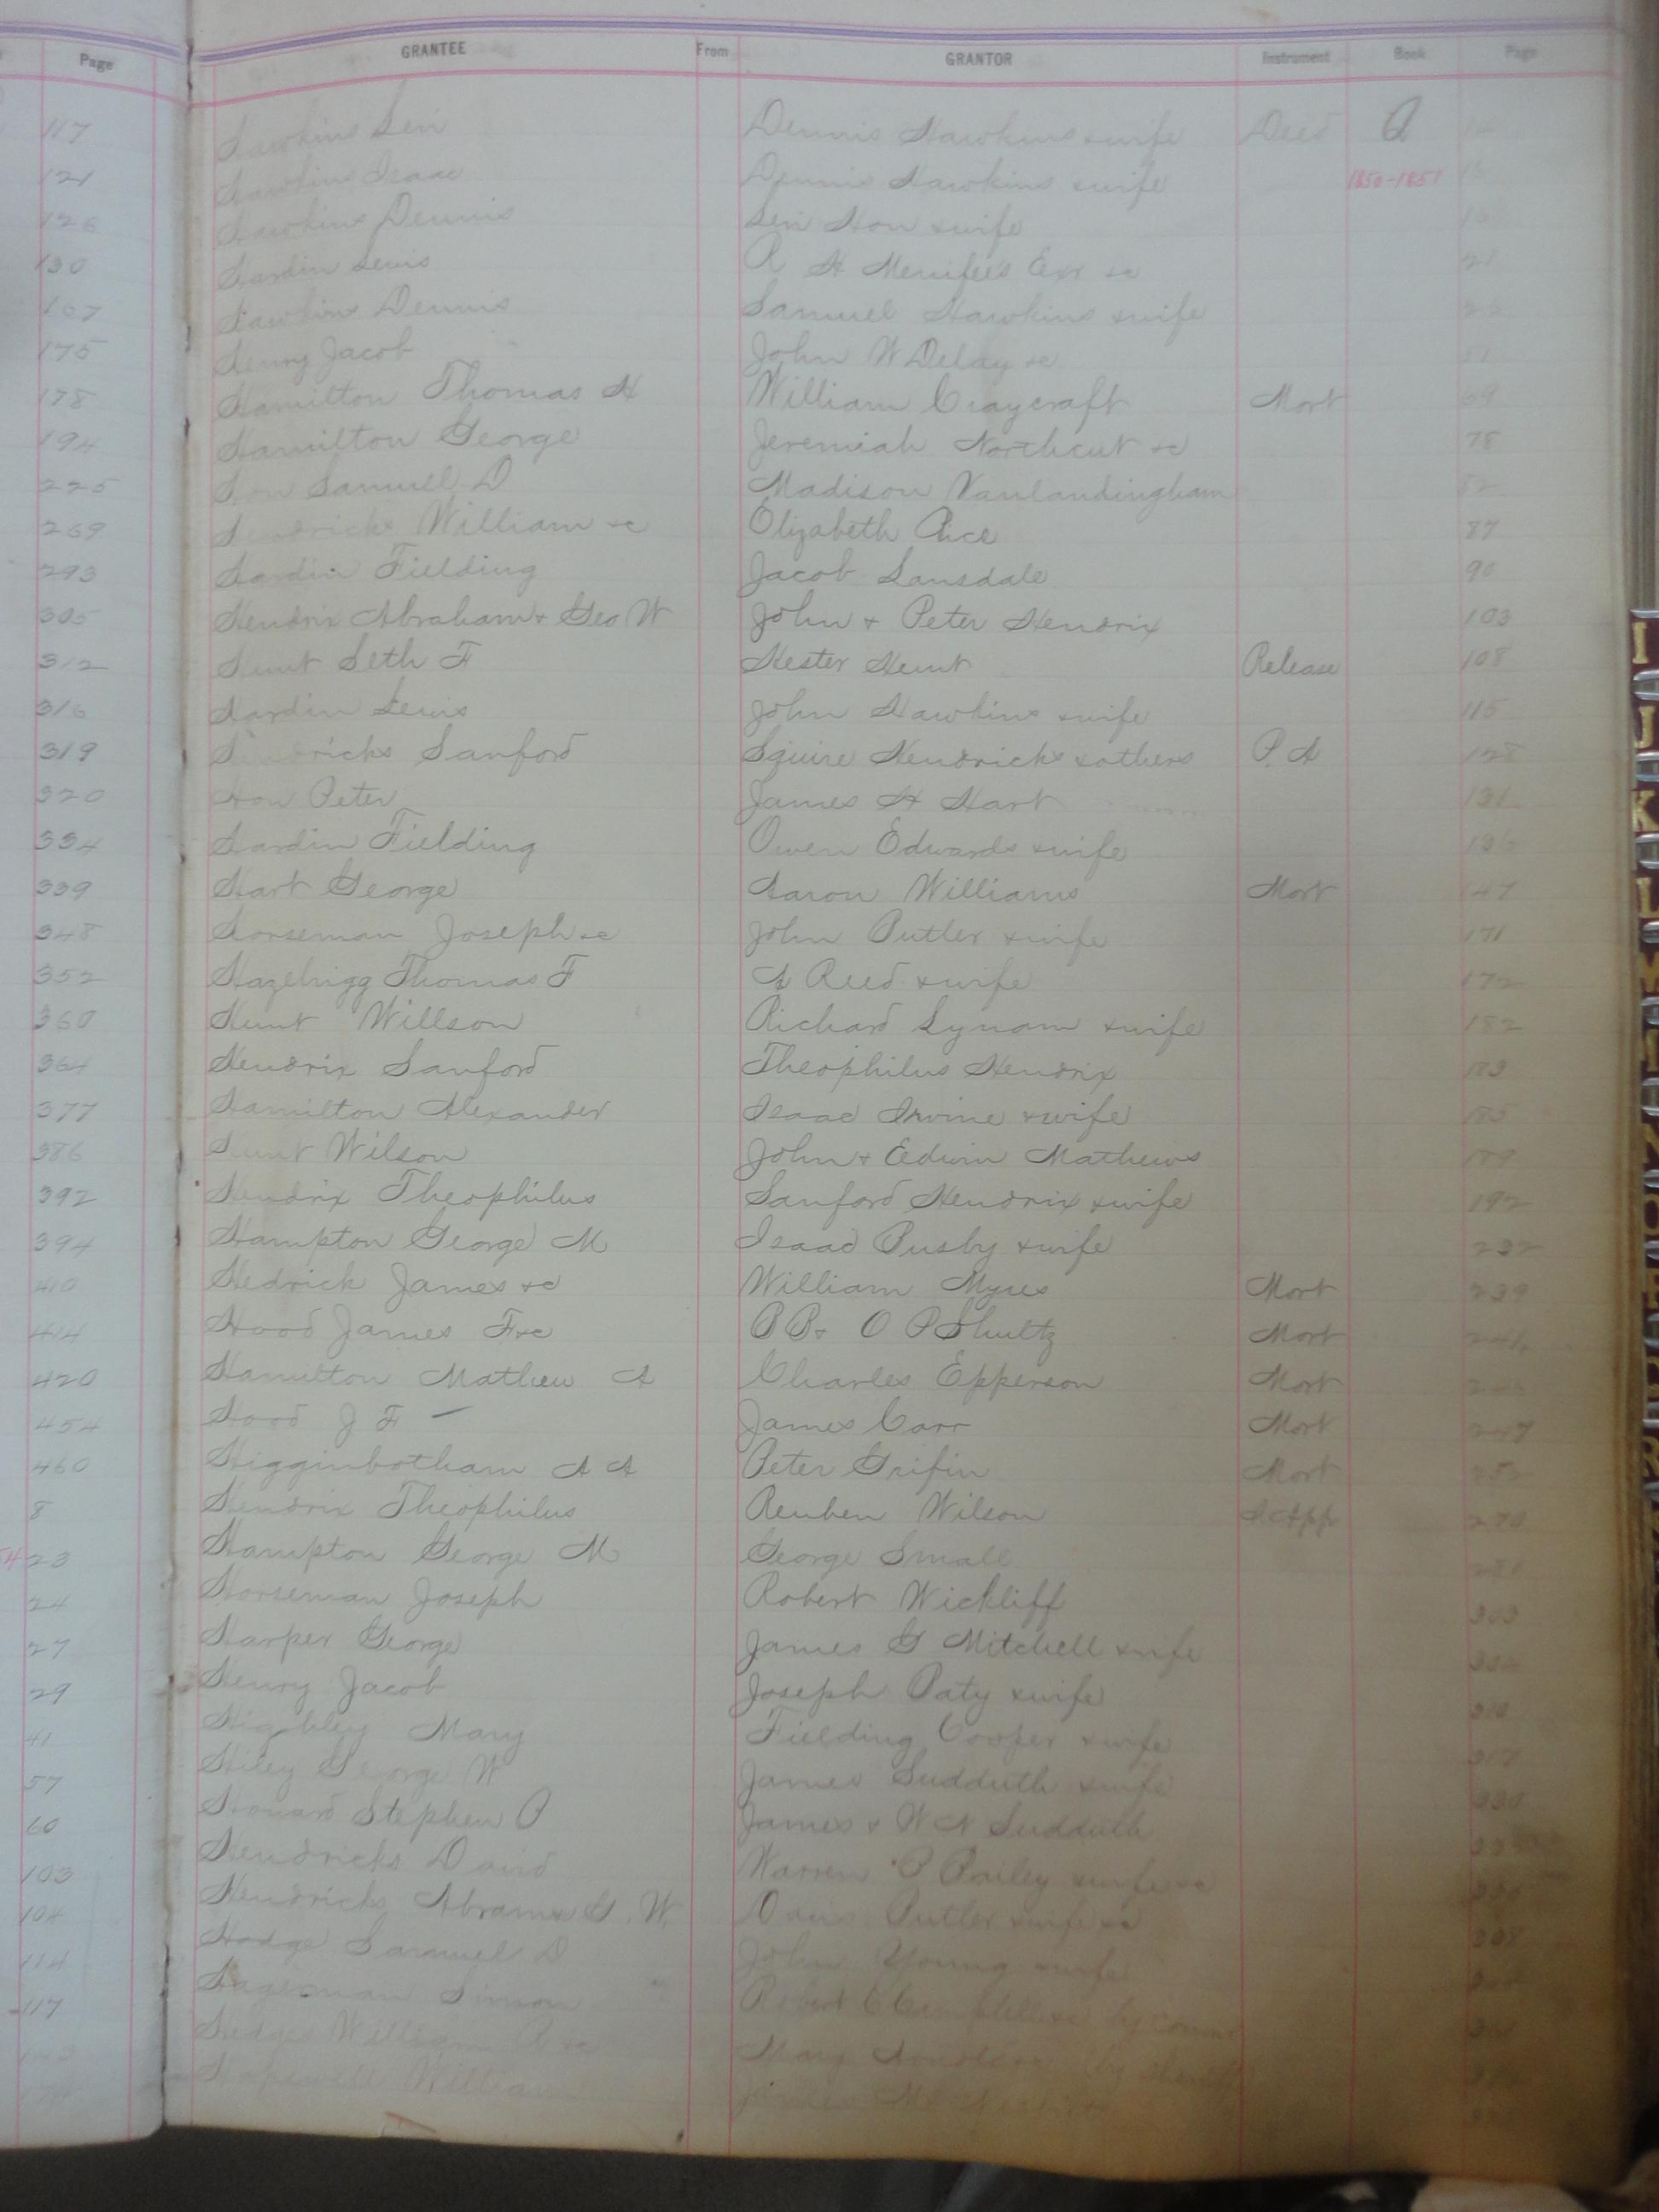 Page GRANTEE From GRANTOR Instrument Book Page
117 Hawkins Levi Dennis Hawkins & wife Deed Q
121 Hawkins Isaac Dennis Hawkins & wife 1850-1851
126 Hawkins Dennis Levi Hon & wife
130 Hardin Lewis R H Menifee's Exr &c 21
167 Hawkins Dennis Samuel Hawkins & wife
175 Henry Jacob John W Delay &c 51
178 Hamilton Thomas H William Craycraft Mort 69
194 Hamilton George Jeremiah Northcut &c 78
225 Hon Samuel D Madison Vanlandingham 82
269 Hendricks William &c Elizabeth Price 87
293 Hardin Fielding Jacob Lansdale 90
305 Hendrix Abraham & Geo W John & Peter Hendrix 103
312 Hunt Seth F Hester Hunt Release 108
316 Hardin Lewis John Hawkins & wife 115
319 Hendricks Sanford Squire Hendricks & others P. A 128
320 Hon Peter James H Hart 131
334 Hardin Fielding Owen Edwards & wife
339 Hart George Aaron Williams Mort 147
348 Horseman Joseph &c John Butler & wife 171
352 Hazelrigg Thomas F A Reed & wife 172
360 Hunt Willson Richard Lynam & wife 182
364 Hendrix Sanford Theophilus Hendrix 183
377 Hamilton Alexander Isaac Irvine & wife 185
386 Hunt Wilson John & Edwin Mathews 189
392 Hendrix Theophilus Sanford Hendrix & wife 192
394 Hampton George M Isaac Busby & wife 232
410 Hedrick James &c William Myres Mort 239
414 Hood James F &c B B & O P Shultz Mort
420 Hamilton Mathew A Charles Epperson Mort
454 Hood J F — James Carr Mort 247
460 Higginbotham A A Peter Grifin Mort 252
8 Hendrix Theophilus Reuben Wilson 270
23 Hampton George M George Small 281
24 Horseman Joseph Robert Wickliff 303
27 Harper George James G Mitchell & wife
29 Henry Jacob Joseph Paty & wife 310
41 Mary Fielding Cooper & wife 317
57 Hiley George W James Sudduth & wife 330
60 Howard Stephen P James & W N Sudduth
103 Hendricks David Warren B Bailey & wife &c
104 Hendricks Abram & G. W. Davis Butler & wife &c
114 Hodge Samuel D John Young & wife
117 Hageman Simon Robert C Campbell &c by
Hedges William &c Mary
Hopewell William James